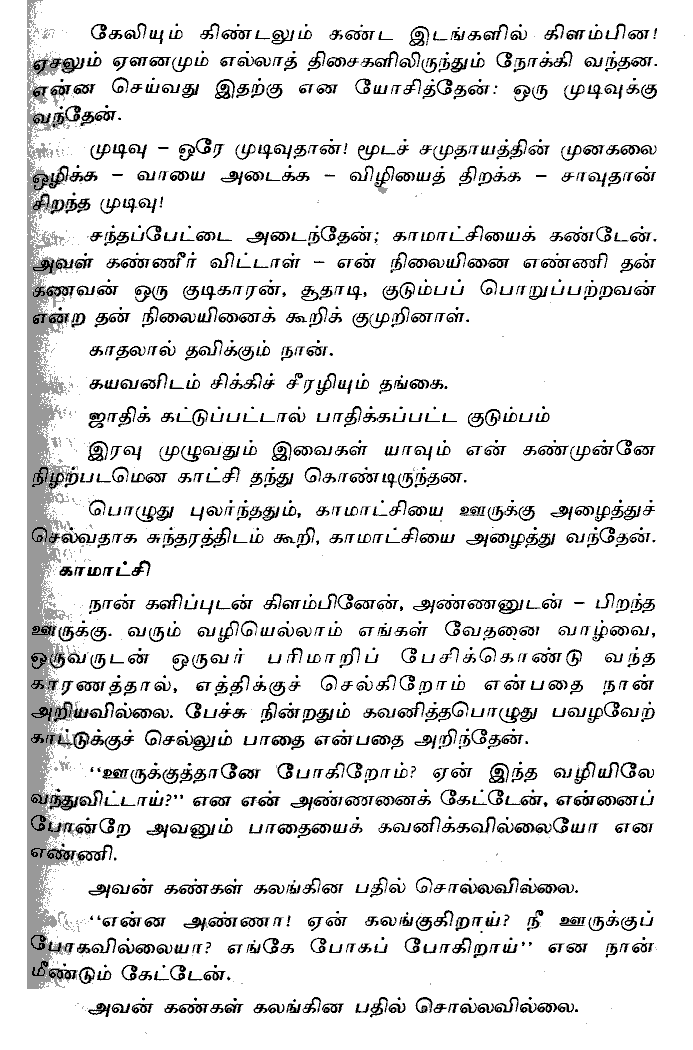 கேலியும் கிண்டலும் கண்ட இடங்களில் கிளம்பின!
ஏசலும் ஏளனமும் எல்லாத் திசைகளிலிருந்தும் நோக்கி வந்தன.
என்ன செய்வது இதற்கு என யோசித்தேன்: ஒரு முடிவுக்கு
வந்தேன்.
முடிவு – ஒரே முடிவுதான்! மூடச் சமுதாயத்தின் முனகலை
ஒழிக்க – வாயை அடைக்க – விழியைத் திறக்க – சாவுதான்
சிறந்த முடிவு!
சந்தப்பேட்டை அடைந்தேன்; காமாட்சியைக் கண்டேன்.
அவள் கண்ணீர் விட்டாள் – என் நிலையினை எண்ணி தன்
கணவன் ஒரு குடிகாரன், சூதாடி, குடும்பப் பொறுப்பற்றவன்
என்ற தன் நிலையினைக் கூறிக் குமுறினாள்.
காதலால் தவிக்கும் நான்.
கயவனிடம் சிக்கிச் சீரழியும் தங்கை.
ஜாதிக் கட்டுப்பட்டால் பாதிக்கப்பட்ட குடும்பம்
இரவு முழுவதும் இவைகள் யாவும் என் கண்முன்னே
நிழற்படமென காட்சி தந்து கொண்டிருந்தன.
பொழுது புலர்ந்ததும், காமாட்சியை ஊருக்கு அழைத்துச்
செல்வதாக சுந்தரத்திடம் கூறி, காமாட்சியை அழைத்து வந்தேன்.
காமாட்சி
நான் களிப்புடன் கிளம்பினேன், அண்ணனுடன் – பிறந்த
ஊருக்கு. வரும் வழியெல்லாம் எங்கள் வேதனை வாழ்வை,
ஒருவருடன் ஒருவர் பரிமாறிப் பேசிக்கொண்டு வந்த
காரணத்தால், எத்திக்குச் செல்கிறோம் என்பதை நான்
அறியவில்லை. பேச்சு நின்றதும் கவனித்தபொழுது பவழவேற்
காட்டுக்குச் செல்லும் பாதை என்பதை அறிந்தேன்.
“ஊருக்குத்தானே போகிறோம்? ஏன் இந்த வழியிலே
வந்துவிட்டாய்?” என என் அண்ணனைக் கேட்டேன், என்னைப்
போன்றே அவனும் பாதையைக் கவனிக்கவில்லையோ என
எண்ணி.
அவன் கண்கள் கலங்கின பதில் சொல்லவில்லை.
“என்ன அண்ணா! ஏன் கலங்குகிறாய்? நீ ஊருக்குப்
போகவில்லையா? எங்கே போகப் போகிறாய்” என நான்
மீண்டும் கேட்டேன்.
அவன் கண்கள் கலங்கின பதில் சொல்லவில்லை.